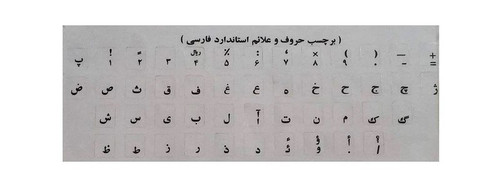 ( برچسب حروف و علائم استاندارد فارسی )
+ — ( ) × ، : ٪ ریال !
= - ۰ ۹ ۸ ۷ ۶ ۵ ۴ ۳ ۲ ۱ پ
ژ چ ج ح خ ه ع غ ف ق ث ص ض
گ ک م ن ت آ ا ل ب ی س ش
ؤ ء
/ . و ئ د ذ ر ز ط ظ